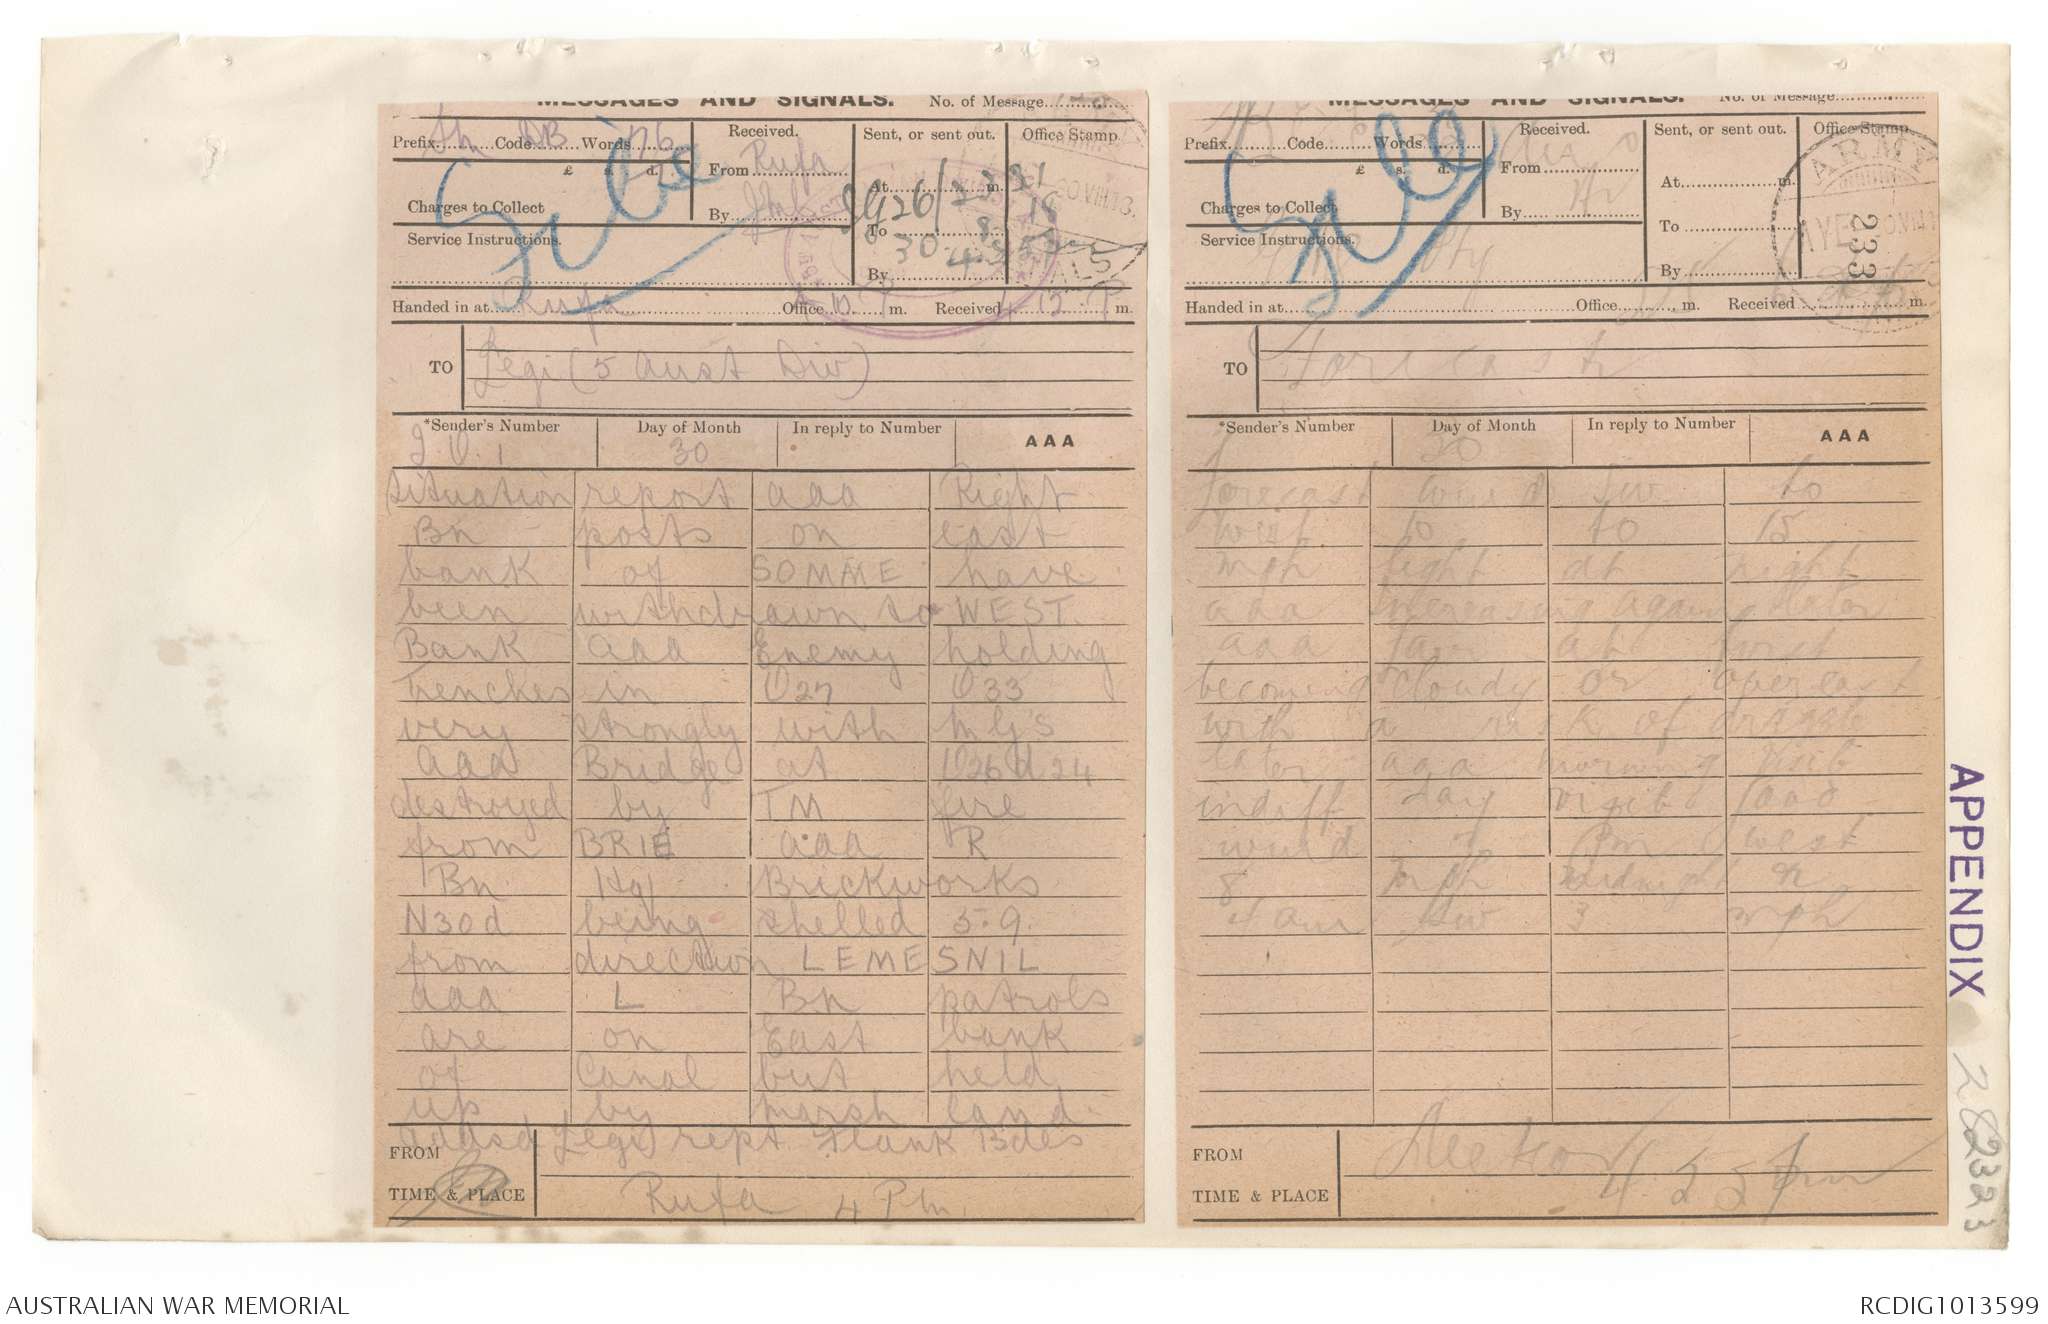 MESSAGES AND SIGNALS. No. of Message
Prefix Sm Code DB Words 176
Received. From Rufa By
Sent, or sent out. At m. To By
Office Stamp.
£ s. d.
Charges to Collect
Service Instructions.
File
GG26/2
30
Handed in at Rufa Office m. Received m.
TO Legi (5 Aust Div)
*Sender's Number Day of Month In reply to Number AAA
30
Situation report aaa Right
Bn posts on east
bank of SOMME have
been withdrawn to WEST
Bank aaa Enemy holding
Trenches in O27 O33
very strongly with MG's
aaa Bridge at O26d24
destroyed by TM fire
from BRIE aaa R
Bn Hq Brickworks
N30d being shelled 5.9.
from direction LEMESNIL
aaa L Bn patrols
are on East bank
of Canal but held
up by marsh land.
addsd Legi rept Flank Bdes
FROM
TIME & PLACE Rufa 4 Pm
MESSAGES AND SIGNALS. No. of Message
Prefix Code Words
Received. From By
Sent, or sent out. At m. To By
Office Stamp.
ARMY
233
£ s. d.
Charges to Collect
Service Instructions. Pty
File
Handed in at Office m. Received m.
TO Forecast
*Sender's Number Day of Month In reply to Number AAA
30
forecast wind SW to
west 10 to 15
mph light at night
aaa increasing again later
aaa fair at first
becoming cloudy or overcast
with a risk of
later aaa morning visib
indiff day visib good
wind Pm west
8 mph midnight
4 am SW 3 mph
FROM Meteor 4 55 pm
TIME & PLACE
APPENDIX
AUSTRALIAN WAR MEMORIAL
RCDIG1013599